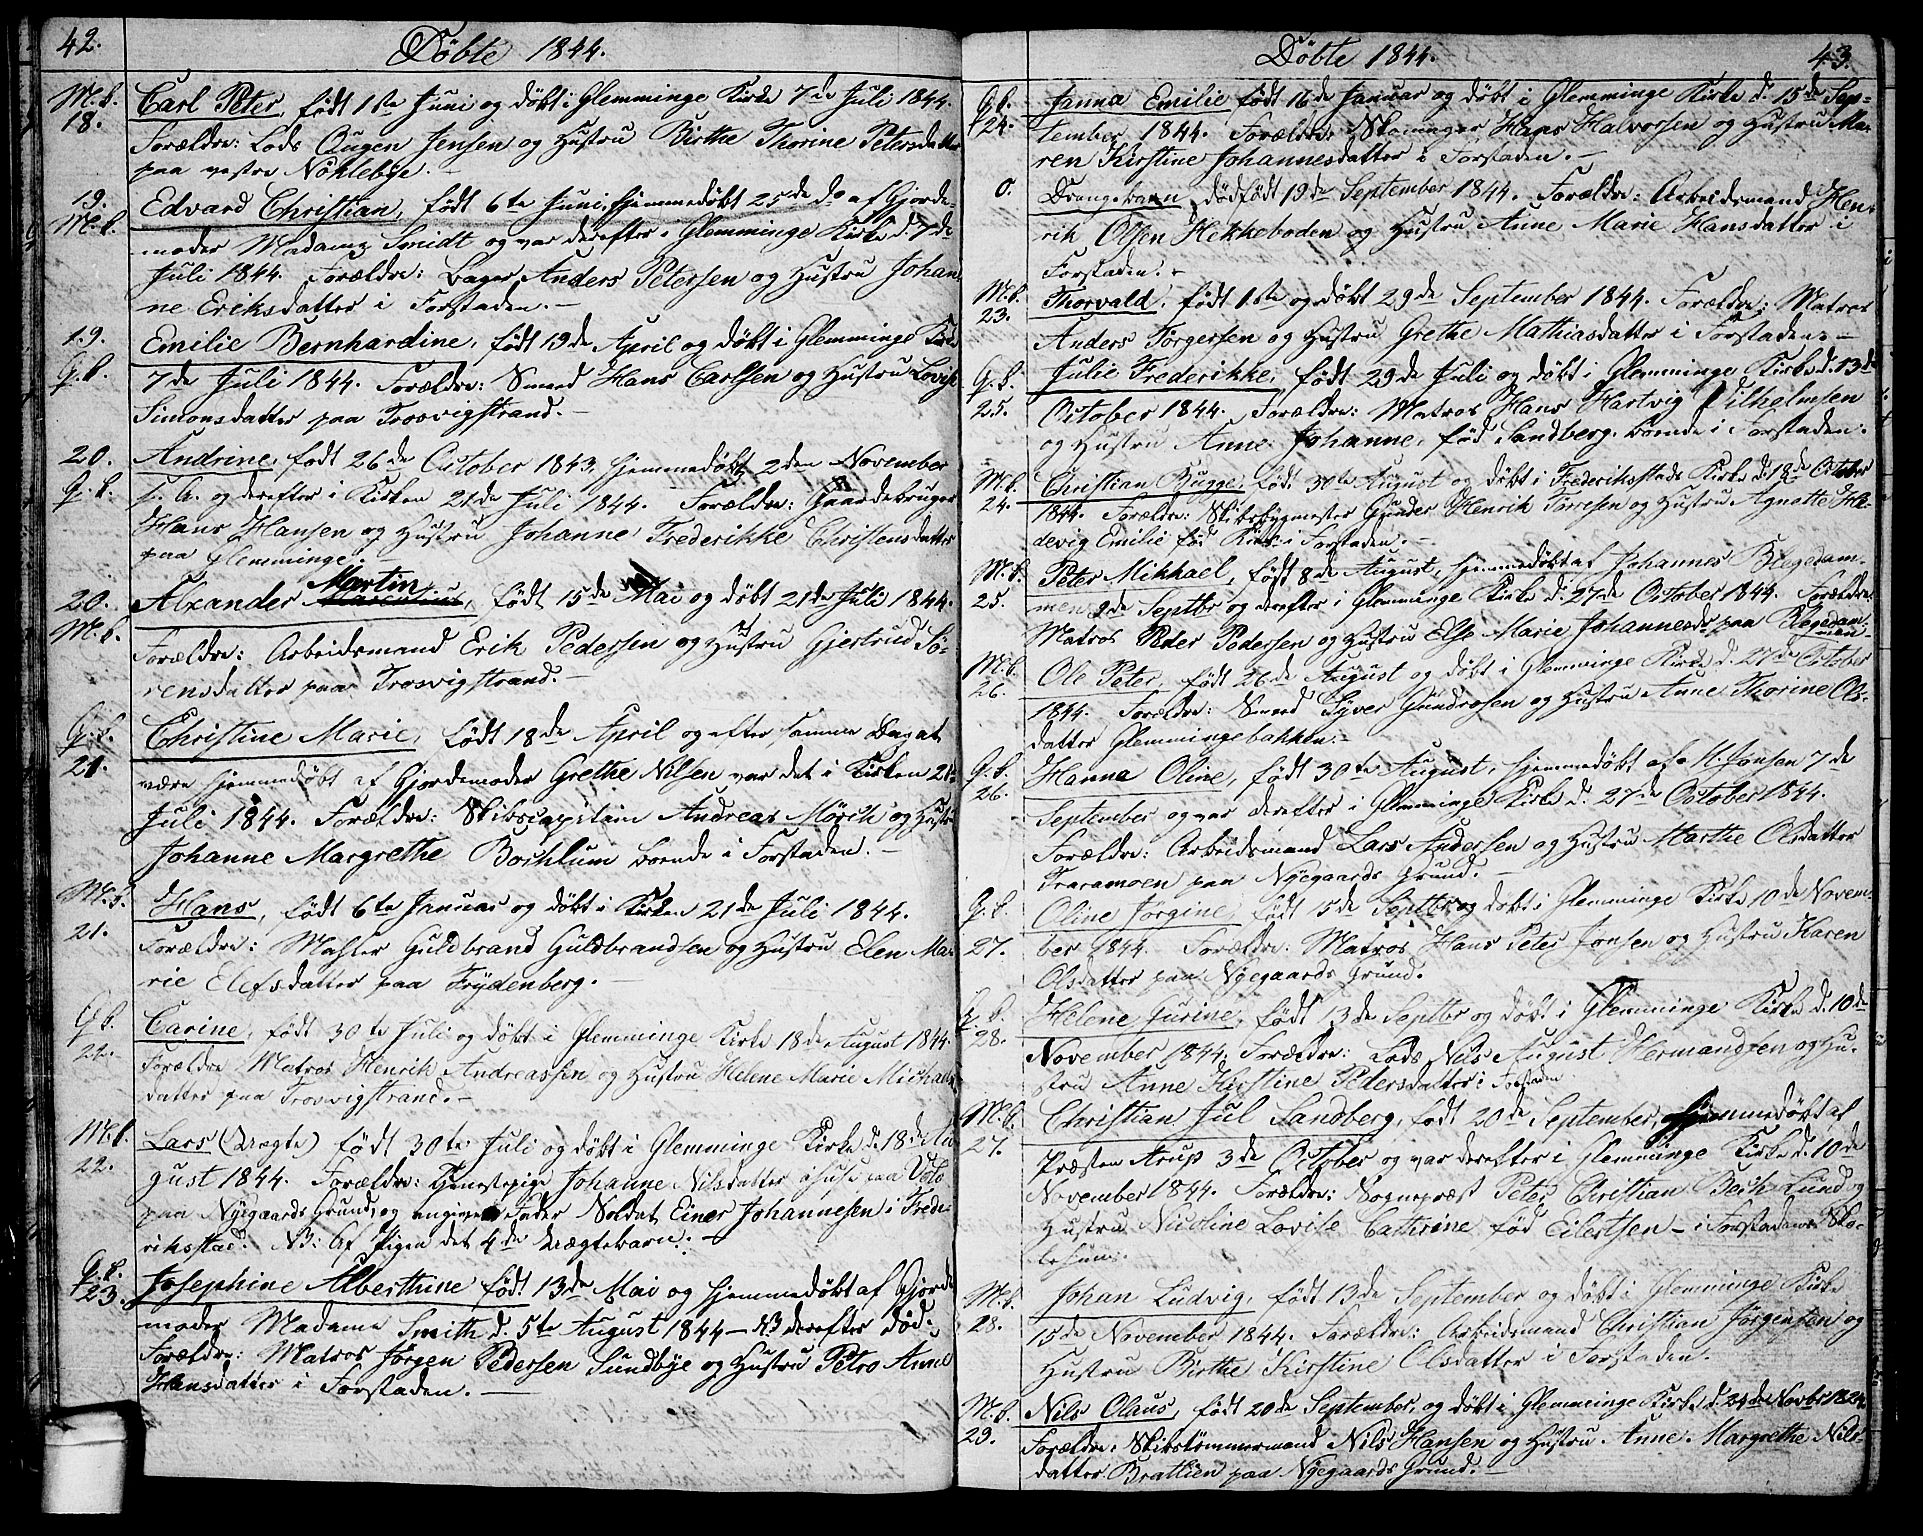 42.
Döbte 1844.
M. b. 18. Carl Peter, født 1ste Juni og døbt i Glemminge Kirke 7de Juli 1844.
Forældre: Lods Ougen Jensen og Hustru Birthe Thorine Petersdatter
paa vestre Nöklebye. -
19. M. b. Edvard Christian, født 6te Juni, hjemmedøbt 25de do af Gjorde-
moder Madame Smidt og var derefter i Glemminge Kirke d. 7de
Juli 1844. Forældre: Bager Anders Petersen og Hustru Johan-
ne Eriksdatter i Forstaden. -
19. G. b. Emilie Bernhardine, født 19de April og døbt i Glemminge Kirke
7de Juli 1844. Forældre: Smed Hans Carlsen og Hustru Lovise
Simonsdatter paa Trosvigstrand. -
20. G. b. Andrine, født 26de October 1843, hjemmedøbt 2den November
s. A. og derefter i Kirken 21de Juli 1844. Forældre: Gaardebruger
Hans Hansen og Hustru Johanne Frederikke Christensdatter
paa Glemminge. -
20. M. b. Alxander Martin, født 15de Mai og døbt 21de Juli 1844.
Forældre: Arbeidsmand Erik Pedersen og Hustru Gjertrud Sö-
rensdatter paa Trosvigstrand. -
G. b. 21. Christine Marie, født 18de April og efter samme Dag at
være hjemmedøbt af Gjordemoder Grethe Nilsen var det i Kirken 21de
Juli 1844. Forældre: Skibscapitain Andreas Mörch og Hustru
Johanne Margrethe Bochlum boende i Forstaden. -
M. b. 21. Hans, født 6te Januar og døbt i Kirken 21de Juli 1844.
Forældre: Mahler Guldbrand Guldbrandsen og Hustru Elen Ma-
rie Elefsdatter paa Frydenberg. -
G. b. 22. Carine, født 30te Juli og døbt i Glemminge Kirke 18de August 1844.
Forældre Matros Henrik Andreassen og Hustru Helene Marie Michaels-
datter paa Trosvigstrand. -
M. b. 22. Lars (Uægte) født 30te Juli og døbt i Glemminge Kirke d. 18de Au
gust 1844. Forældre: Tjenestepige Johanne Nilsdatter
paa Nygaards Grund, og angiven Fader Soldat Einer Johannesen i Frede-
rikstad. NB: Af Pigen det 4de Uægtebarn. -
G. b. 23. Josephine Alberthine født 13de Mai og hjemmedøbt af Gjorde
moder Madame Smith d. 5te August 1844 - NB derefter død.
Forældre: Matros Jörgen Pedersen Sundbye og Hustru Petro Anne
Hansdatter i Forstaden. -
Döbte 1844.
43.
G. b. 24. Janna Emilie født 16de Januar og døbt i Glemminge Kirke d. 15de Sep-
tember 1844. Forældre: Skomager Hans Halvorsen og Hustru Ma-
ren Kirstine Johannesdatter i Forstaden. -
0. Drengebarn, dødfødt 19de September 1844. Forældre: Arbeidsmand Hen-
rik Olsen Hekkeboden og Hustru Anne Marie Hansdatter i
Forstaden. -
M. b. 23. Thorvald, født 1ste og døbt 29de September 1844. Forældre: Matros
Anders Törgersen og Hustru Grethe Mathiasdatter i Forstaden. -
G. b. 25. Julie Frederikke, født 29de Juli og døbt i Glemminge Kirke d. 13de
October 1844. Forældre: Matros Hans Hartvig Vilhelmsen
og Hustru Anne Johanne, fød Sandberg, boende i Forstaden.
M. b. 24. Christian Bugge, født 30te August og døbt i Frederiksstads Kirke d. 18de October
1844. Forældre: Skibsbygmester Gunder Henrik Torresen og Hustru Agnette He-
devig Emilie fød i Forstaden. -
M. b. 25. Peter Mikhael, født 8de August, hjemmedøbt af Johannes Blegedam-
men, 2de Septbr og derefter i Glemminge Kirke d. 27de October 1844. Forældre:
Matros Peder Pedersen og Hustru Else Marie Johannesdr paa Blegedam-
men
M. b. 26. Ole Peter, født 26de August og døbt i Glemminge Kirke d. 27de October
1844. Forældre: Smed Syver Gundrosen og Hustru Anne Thorine Ols-
datter Glemmingebakken. -
G. b. 26. Hanna Oline, født 30te August, hjemmedøbt af M. Jonsen 7de
September og var derefter i Glemminge Kirke d. 27de October 1844.
Forældre: Arbeidsmand Lars Andersen og Hustru Marthe Olsdatter
Traramoen paa Nyegaards Grund. -
G. b. 27. Oline Jörgine, født 15de Septbr og døbt i Glemminge Kirke 10de Novem-
ber 1844. Forældre: Matros Hans Peter Jonsen og Hustru Karen
Olsdatter paa Nyegaards Grund.
G. b. 28. Helene Gurine, født 13de Septbr og døbt i Glemminge Kirke d. 10de
November 1844. Forældre: Lods Nils August Hermandsen og Hu-
stru Anne Kirstine Pedersdatter i Forstaden
M. b. 27. Christian Jul Sandberg, født 20de September, hjemmedøbt af
Præsten Arup 3de October og var derefter i Glemminge Kirke d. 10de
November 1844. Forældre: Sognepræst Peter Christian Bech Lund og
Hustru Nicoline Lovise Cathrine fød Eilertsen - i Forstadens Sko-
lehuus.
M. b. 28. Johan Ludvig, født 13de September og døbt i Glemminge Kirke
15de November 1844. Forældre: Arbeidsmand Christian Jörgensen og
Hustru Birthe Kirstine Olsdatter i Forstaden.
M. b. 29. Nils Olaus, født 20de September, og døbt i Glemminge Kirke d. 24de Novbr 1824.
Forældre: Skibstömmermand Nils Hansen og Hustru Anne Margrethe Nils-
datter Bratlien paa Nyegaards Grund. -